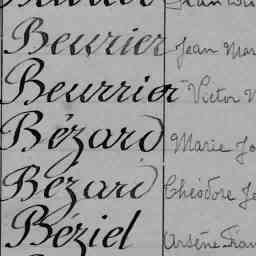 Beurier Jean Mar
Beurrier Victor
Bézard Marie Jo
Bézard Théodore Je
Béziel Arsène Fran